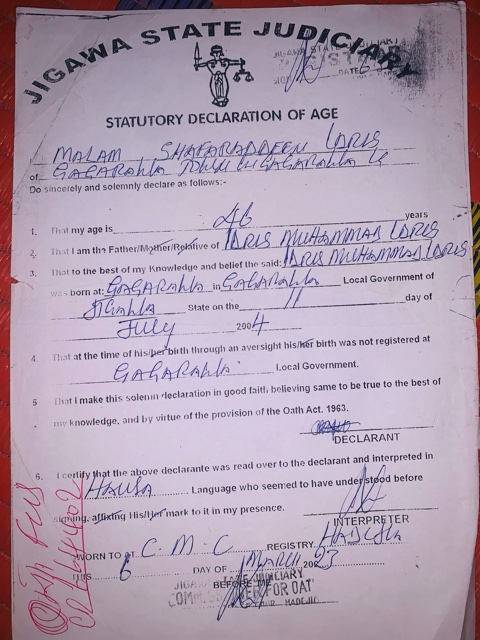 JIGAWA STATE JUDICIARY
STATUTORY DECLARATION OF AGE
MALAM SHAFARADDEEN IDRIS
of GAGARAWA
Do sincerely and solemnly declare as follows:-
1. That my age is 46 years
2. That I am the Father/Mother/Relative of IDRIS MUHAMMAD IDRIS
3. That to the best of my Knowledge and belief the said: IDRIS MUHAMMAD IDRIS
was born at: GAGARAWA in GAGARAWA Local Government of
JIGAWA State on the 11 day of
JULY 2004
4. That at the time of his/her birth through an oversight his/her birth was not registered at
GAGARAWA Local Government.
5 That I make this solemn declaration in good faith believing same to be true to the best of
my knowledge, and by virtue of the provision of the Oath Act. 1963.
DECLARANT
6. I certify that the above declarante was read over to the declarant and interpreted in
HAUSA Language who seemed to have understood before
signing, affixing His/Her mark to it in my presence.
INTERPRETER
SWORN TO at C.M.C REGISTRY HADEJIA
THIS 6 DAY OF MARCH 2023
BEFORE ME
JIGAWA STATE JUDICIARY
COMMISSIONER FOR OAT